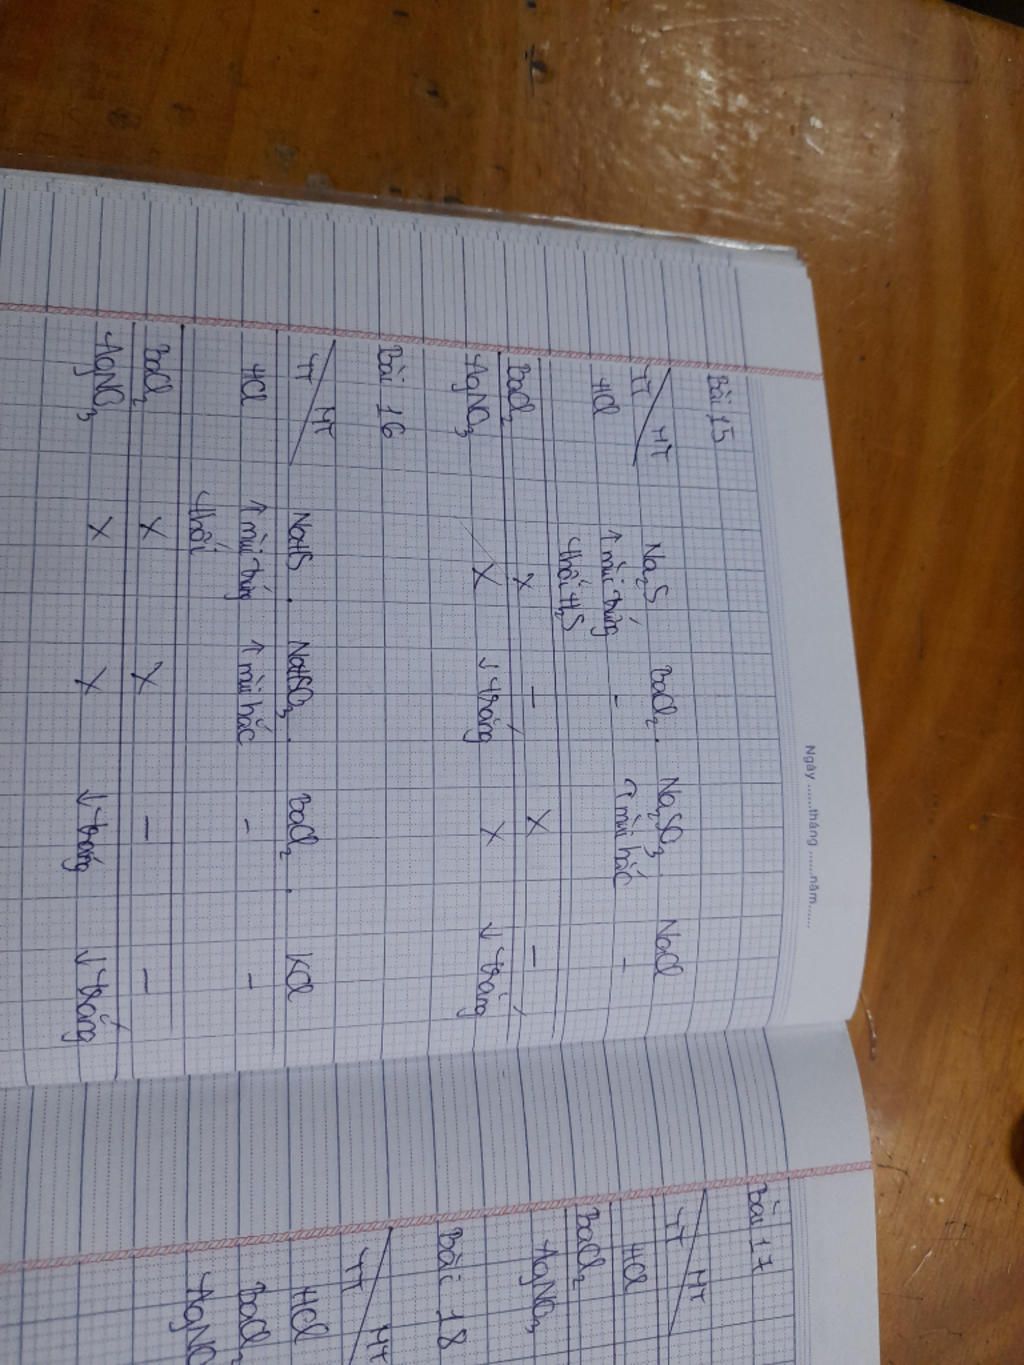 Ngày ......tháng ......năm......
Bài 15
TT / HT Na₂S BaCl₂. Na₂SO₃ NaCl
HCl ↑ mùi trứng - ↑ mùi hắc -
thối H₂S
BaCl₂ x - x -
AgNO₃ x ↓ trắng x ↓ trắng
Bài 16
TT / HT NaHS. NaHSO₃. BaCl₂. KCl
HCl ↑ mùi trứng ↑ mùi hắc - -
thối
BaCl₂ x x - -
AgNO₃ x x ↓ trắng ↓ trắng
Bài 17
TT / HT
HCl
BaCl₂
AgNO₃
Bài 18
TT / HT
HCl
BaCl₂
AgNO